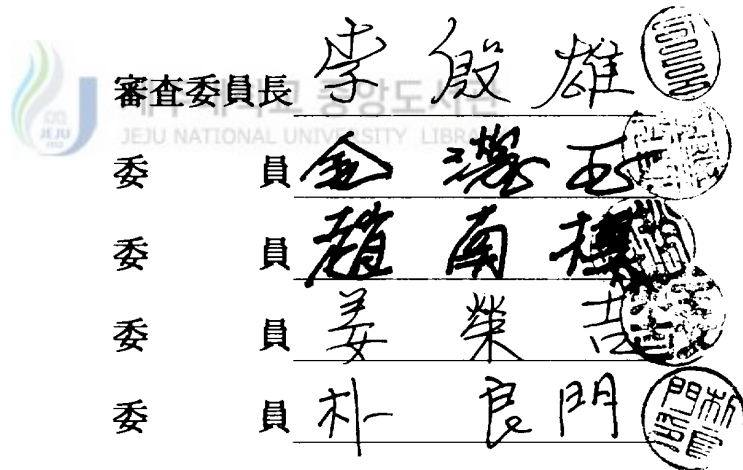 審査委員長 李 殷 雄
제주대학교 중앙도서관
JEJU NATIONAL UNIVERSITY LIBRARY
JEJU
1952
委 員 金 漢 玉
委 員 趙 南 棋
委 員 姜 榮 吉
委 員 朴 良 門